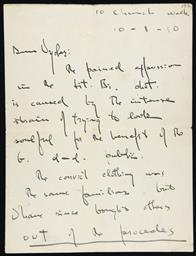 10 Church walk
10-8-10
Dear Sydes:
The pained expression
in the Lit. Bs. dot.
is caused by the intense
strain of trying to look
soulful for the benefit of the
b. d—d. public.
The convict clothing was
the same familiar but
I have since bought others
out of the proceeds